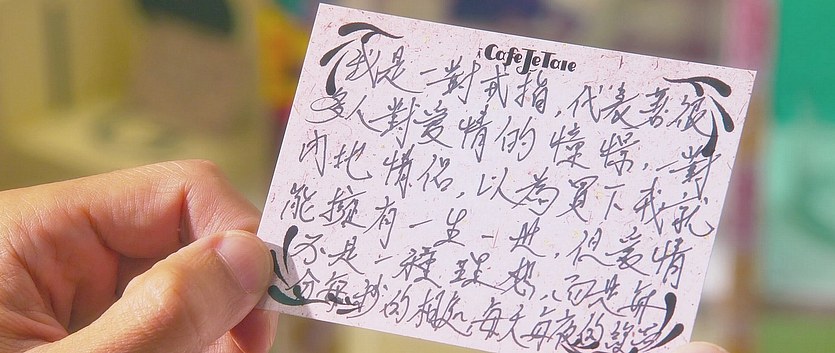 CafeJeTare
我是一對戒指,代表著很
多人對愛情的憧憬,一對
內地情侶,以為買下我就
能擁有一生一世,但愛情
不是一種理想,而是每
分每秒的相處,每天每夜的